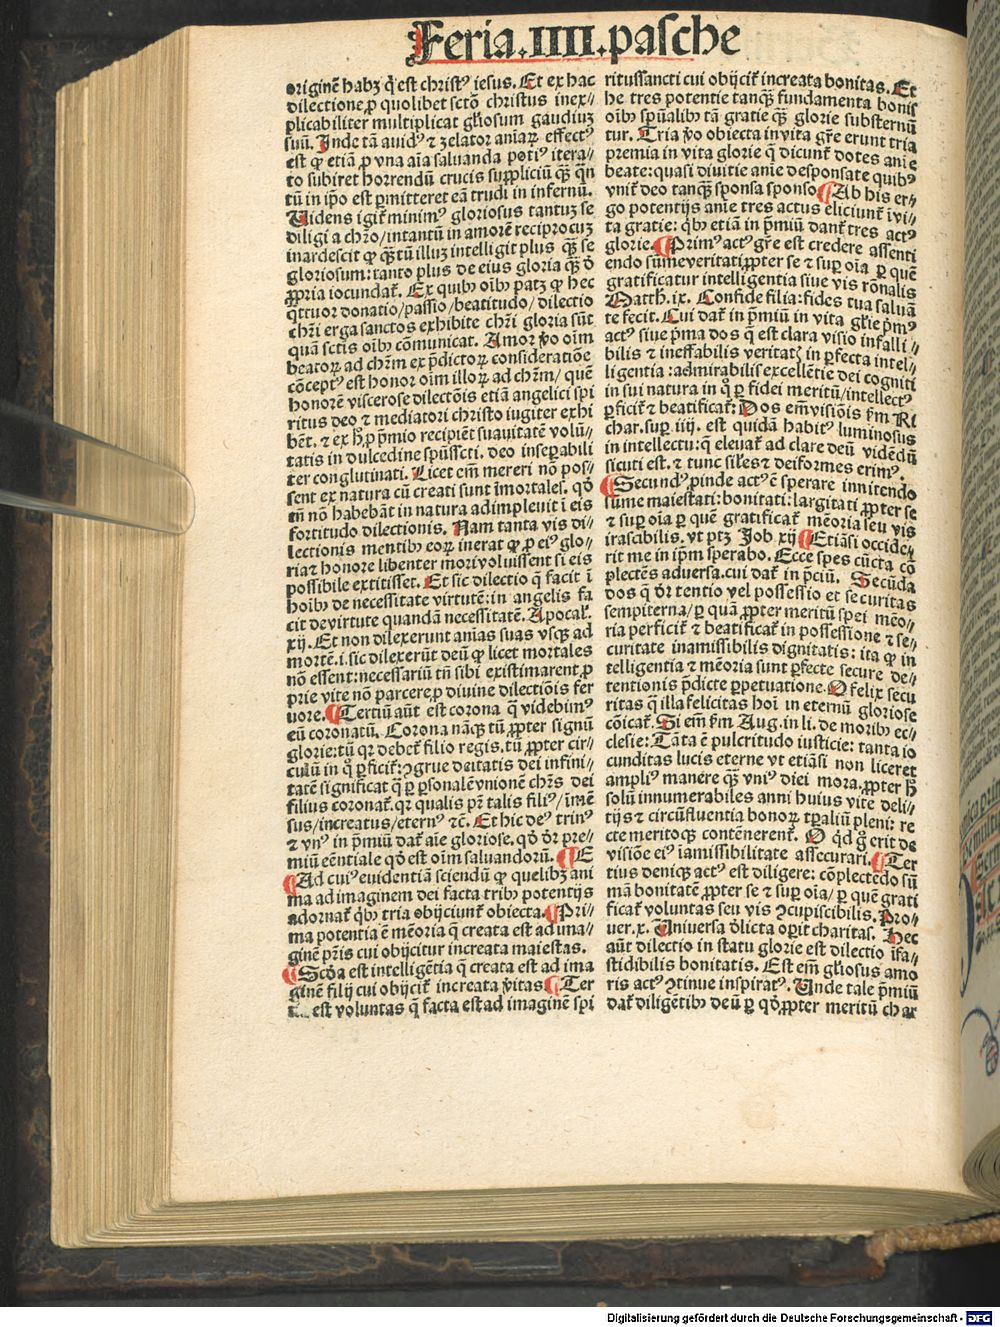 Feria.IIII.pasche
originē habꝫ q̄ est christꝰ iesus. Et ex hac
dilectione ꝓ quolibet sctō christus inex//
plicabiliter multiplicat gl̄iosum gaudiuꝫ
suū. Inde tā auidꝰ ⁊ zelator aniaꝝ effectꝰ
est ꝙ etiā ꝓ vna aīa saluanda potiꝰ itera//
to subiret horrendū crucis suppliciū qꝫ̄ qn̄
tū in ip̄o est ꝑmitteret eā trudi in infernū.
Uidens igit᷑ minimꝰ gloriosus tantuꝫ se
diligi a chr̄o/intantū in amorē reciprocuꝫ
inardescit ꝙ qꝫ̄tū illuꝫ intelligit plus qꝫ̄ se
gloriosum: tanto plus de eius gloria qꝫ̄ ð
ꝓpria iocundat᷑. Ex quibꝰ oībꝰ patꝫ ꝙ hec
q̄ttuor donatio/passio/beatitudo/dilectio
chr̄i erga sanctos exhibite chr̄i gloria sūt
quā sctis oībꝰ cōmunicat. Amor ꝟo oīm
beatoꝝ ad chr̄m ex p̄dictoꝝ consideratiōe
cōceptꝰ est honor oīm illoꝝ ad chr̄m/ quē
honorē viscerose dilectōis etiā angelici spi
ritus deo ⁊ mediatori christo iugiter exhi
bēt. ⁊ ex h̄ ꝓ p̄mio recipiēt suauitatē volū//
tatis in dulcedine spūsscti. deo inseꝑabili
ter conglutinati. Licet em̄ mereri nō pos//
sent ex natura cū creati sunt īmortales. qð
tn̄ nō habebāt in natura adimpleuit ī eis
fortitudo dilectionis. Nam tanta vis di//
lectionis mentibꝰ eoꝝ inerat ꝙ ꝓ eiꝰ glo//
ria ⁊ honore libenter mori voluissent si eis
possibile extitisset. Et sic dilectio q̄ facit ī
hoībꝰ de necessitate virtutē: in angelis fa
cit de virtute quandā necessitatē. Apocal᷑.
xij. Et non dilexerunt aīas suas vsqꝫ ad
mortē.i. sic dilexerūt deū ꝙ licet mortales
nō essent: necessariū tn̄ sibi existimarent ꝓ
prie vite nō parcere ꝓ diuine dilectiōis fer
uore. ¶ Tertiū aūt est corona q̄ videbimꝰ
eū coronatū. Corona nāqꝫ tū ꝓpter signū
glorie: tū qꝛ debet᷑ filio regis. tū ꝓpter cir//
culū in q̊ ꝑficit᷑: ꝯgrue deitatis dei infini//
tatē significat q̄ ꝑ ꝑsonalē vnionē chr̄s dei
filius coronat᷑. qꝛ qualis pr̄ talis filiꝰ/īmē
sus/increatus/eternꝰ ⁊c̄. Et hic deꝰ trinꝰ
⁊ vnꝰ in p̄miū dat᷑ aīe gloriose. qð ðr pre//
miū eēntiale qð est oīm saluandorū. ¶ E
¶ Ad cuiꝰ euidentiā sciendū ꝙ quelibꝫ ani
ma ad imaginem dei facta tribꝰ potentijs
adornat᷑ q̄bꝰ tria obijciunt᷑ obiecta. ¶ Pri//
ma potentia ē mēoria q̄ creata est ad ima//
ginē pr̄is cui obijcitur increata maiestas.
¶ Scða est intelligētia q̄ creata est ad ima
ginē filij cui obijcit᷑ increata ꝟitas ¶ Ter
est voluntas q̄ facta est ad imaginē spi
ritussancti cui obijcit᷑ increata bonitas. Et
he tres potentie tanqꝫ̄ fundamenta bonis
oībꝰ spūalibꝰ tā gratie qꝫ̄ glorie substernū
tur. Tria ꝟo obiecta in vita gr̄e erunt tria
premia in vita glorie q̄ dicunt᷑ dotes anīe
beate: quasi diuitie anīe desponsate quibꝰ
vnit᷑ deo tanqꝫ̄ sponsa sponso ¶ Ab his er//
go potentijs anīe tres actus eliciunt᷑ ī vi//
ta gratie: q̄bꝰ etiā in p̄miū dant᷑ tres actꝰ
glorie. ¶ Primꝰ actꝰ gr̄e est credere assenti
endo sūme veritati ꝓpter se ⁊ suꝑ oīa ꝑ quē
gratificatur intelligentia siue vis rōnalis
Matth. ix. Confide filia: fides tua saluā
te fecit. Cui dat᷑ in p̄miū in vita gl̄ie p̄mꝰ
actꝰ siue p̄ma dos q̄ est clara visio infalli//
bilis ⁊ ineffabilis veritatꝫ in ꝑfecta intel//
ligentia: admirabilis excellētie dei cogniti
in sui natura in q̊ ꝑ fidei meritū/intellectꝰ
ꝑficit᷑ ⁊ beatificat᷑: Dos em̄ visiōis ẜm Ri
char. suꝑ iiij. est quidā habitꝰ luminosus
in intellectu: q̄ eleuat᷑ ad clare deū vidēdū
sicuti est. ⁊ tunc sil̄es ⁊ deiformes erimꝰ.
¶ Secundꝰ ꝓinde actꝰ ē sperare innitendo
sūme maiestati: bonitati: largitati ꝓpter se
⁊ suꝑ oīa ꝑ quē gratificat᷑ mēoria seu vis
irascibilis. vt ptꝫ Job xij ¶ Etiāsi occide//
rit me in ip̄m sperabo. Ecce spes cūcta cō
plectēs aduersa. cui dat᷑ in p̄ciū. Secūda
dos q̄ ðr tentio vel possessio et securitas
sempiterna/ꝑ quā ꝓpter meritū spei mēo//
ria perficit᷑ ⁊ beatificat᷑ in possessione ⁊ se//
curitate inamissibilis dignitatis: ita ꝙ in
telligentia ⁊ mēoria sunt ꝑfecte secure de//
tentionis p̄dicte ꝑpetuatione. O felix secu
ritas q̄ illa felicitas hoī in eternū gloriose
cōicat᷑. Si em̄ ẜm Aug. in li. de moribꝰ ec//
clesie: Tāta ē pulcritudo iusticie: tanta io
cunditas lucis eterne vt etiāsi non liceret
ampliꝰ manere qꝫ̄ vniꝰ diei mora. ꝓpter h̄
solū innumerabiles anni huius vite deli//
tijs ⁊ circūfluentia bonoꝝ tꝑaliū pleni: re
cte meritoqꝫ contēnerent᷑. O q̄d g̊ erit de
visiōe eiꝰ iamissibilitate assecurari. ¶ Ter
tius deniqꝫ actꝰ est diligere: cōplectēdo sū
mā bonitatē ꝓpter se ⁊ suꝑ oīa/ꝑ quē grati
ficat᷑ voluntas seu vis ꝯcupiscibilis. Pro//
uer. x. Uniuersa ðlicta oꝑit charitas. Hec
aūt dilectio in statu glorie est dilectio īfa//
stidibilis bonitatis. Est em̄ gl̄iosus amo
ris actꝰ ꝯtinue inspiratꝰ. Unde tale p̄miū
dat᷑ diligētibꝰ deū ꝑ qð ꝓpter meritū char
Digitalisierung gefördert durch die Deutsche Forschungsgemeinschaft - DFG